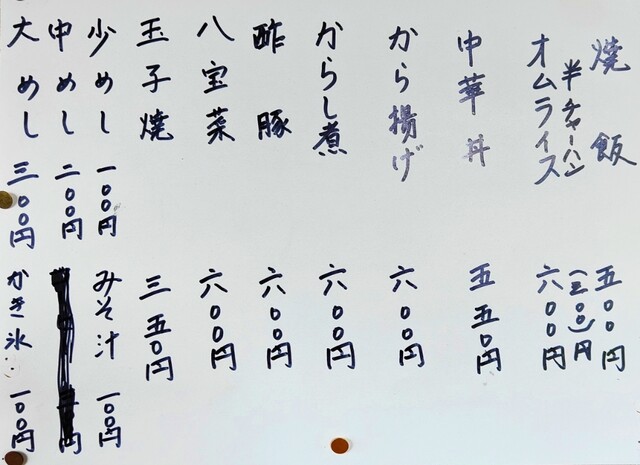 焼飯 五〇〇円
半チャーハン (三〇〇)円
オムライス 六〇〇円
中華丼 五五〇円
から揚げ 六〇〇円
からし煮 六〇〇円
酢豚 六〇〇円
八宝菜 六〇〇円
玉子焼 三五〇円
少めし 一〇〇円
みそ汁 一〇〇円
中めし 二〇〇円
円
大めし 三〇〇円
かき氷 一〇〇円